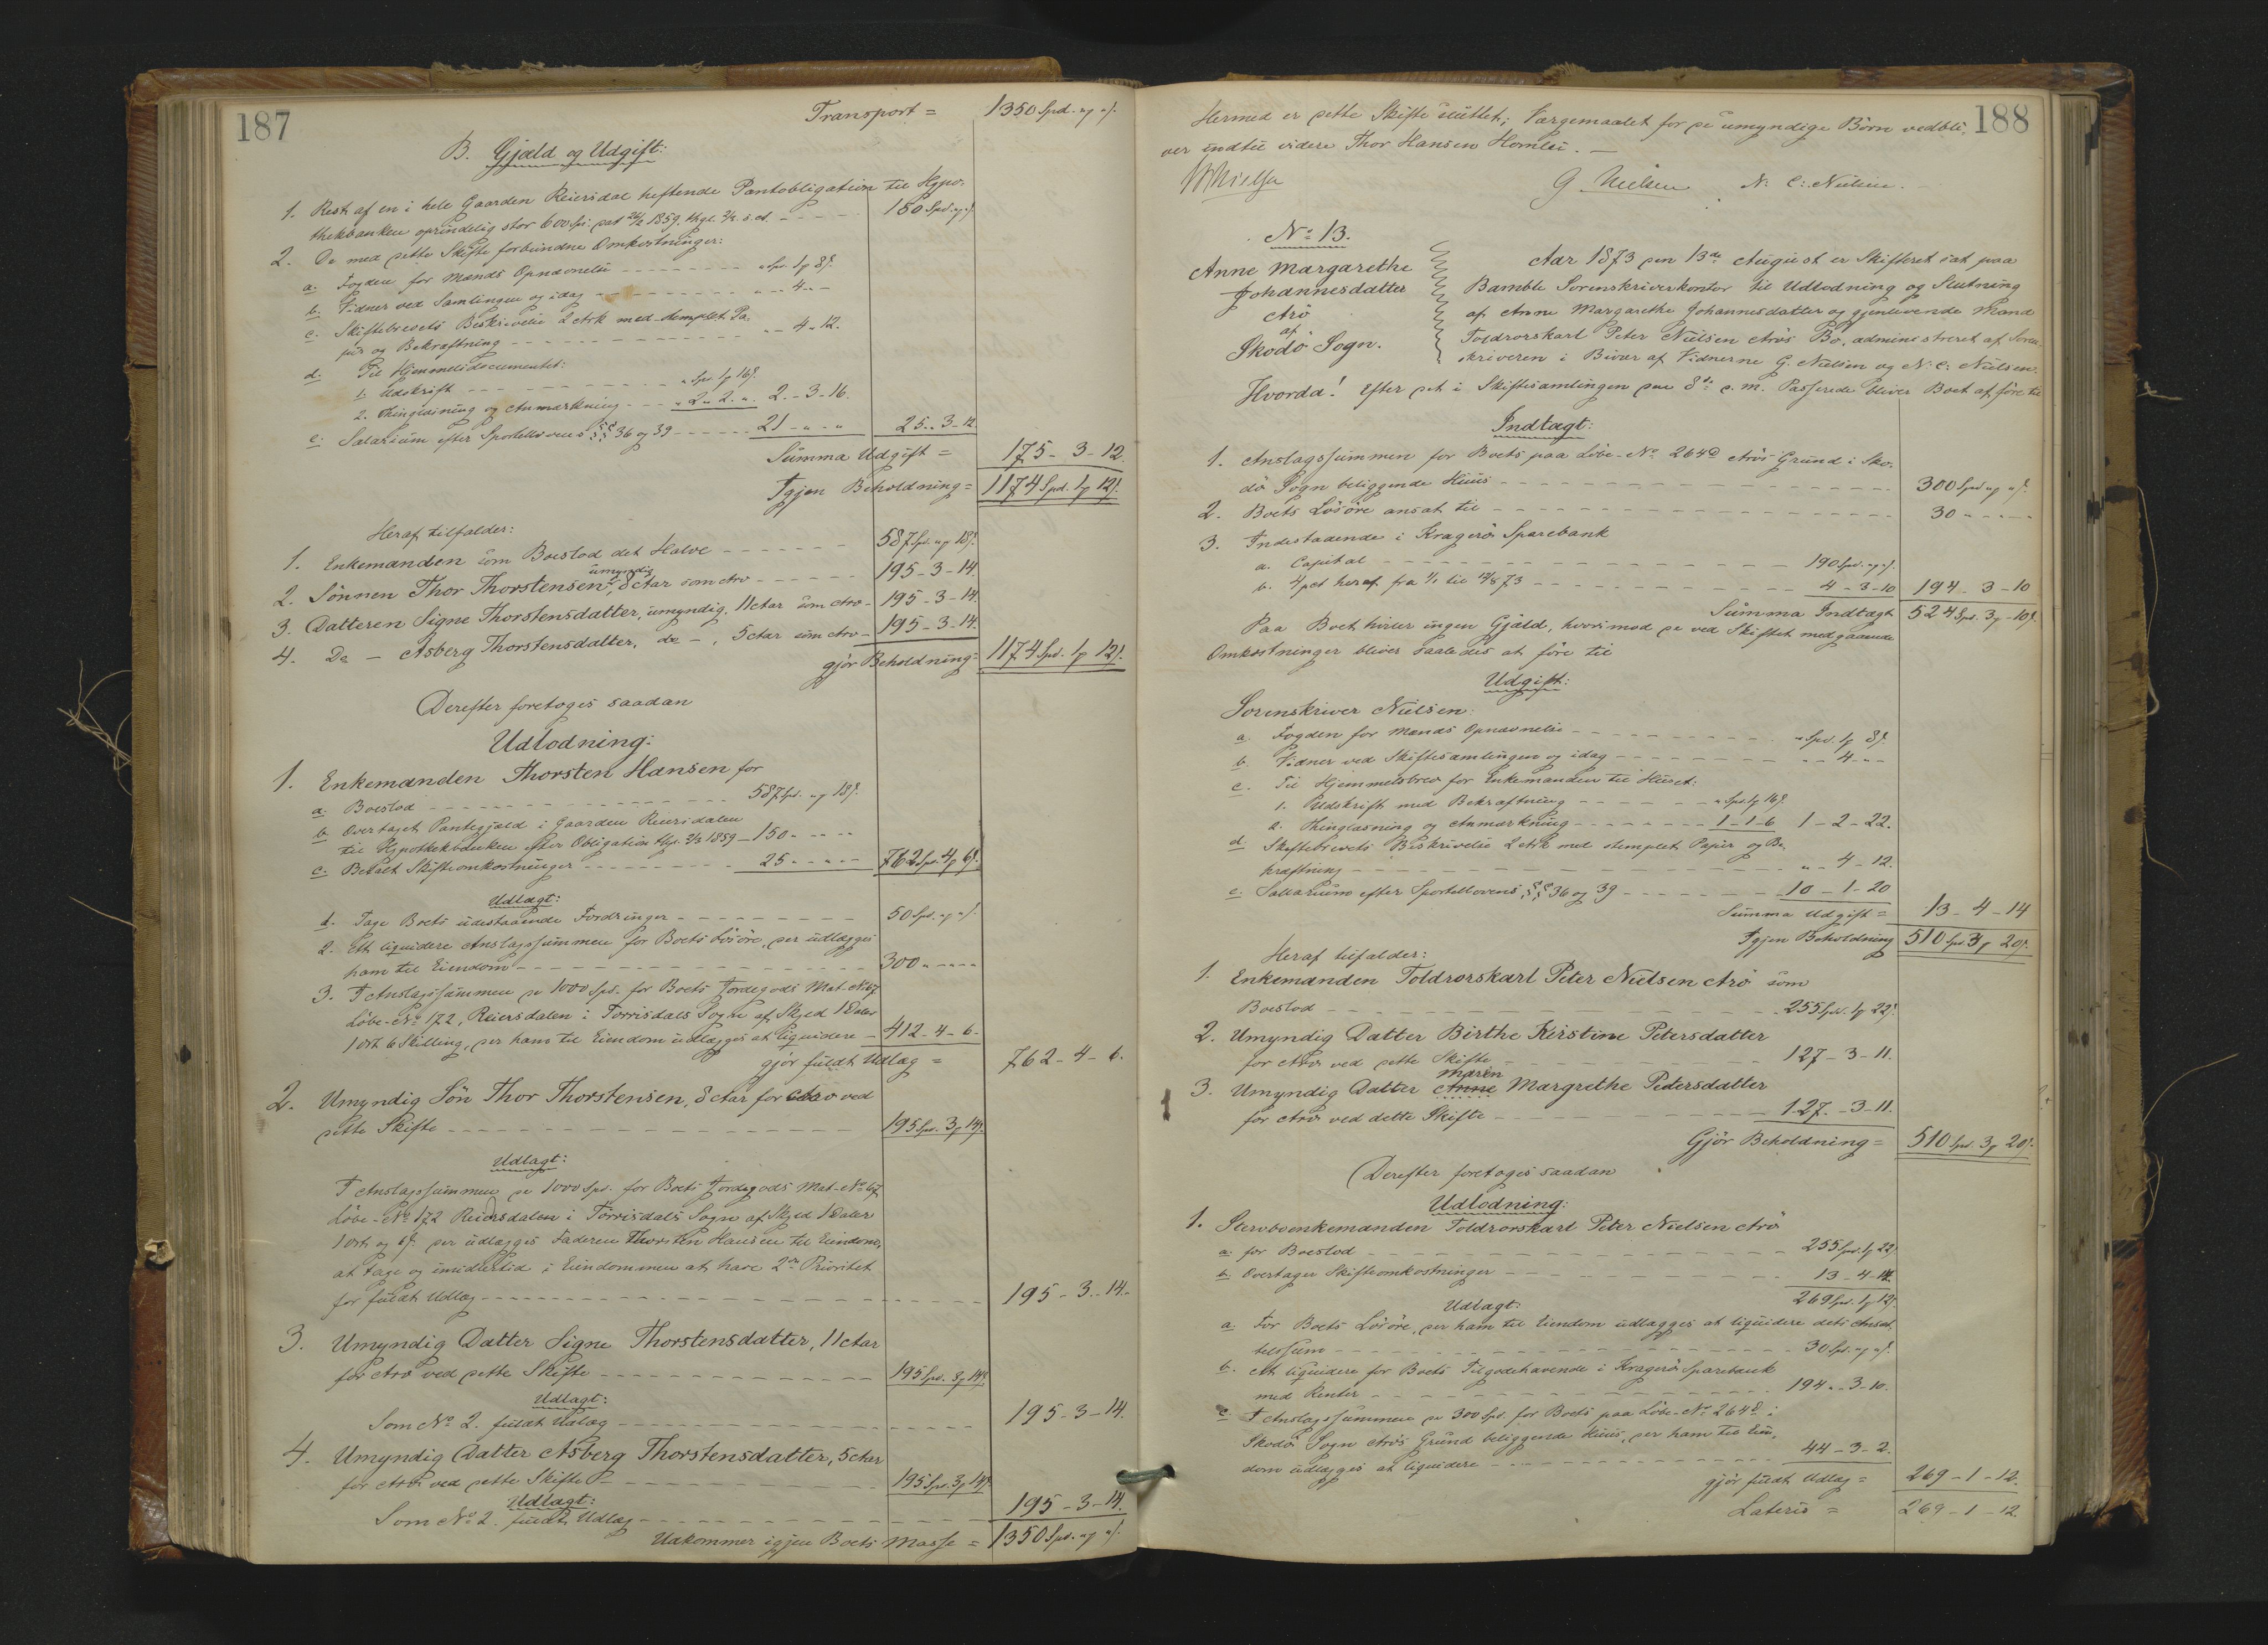 187
Transport = 1350 Spd. " ß ".
B. Gjæld og Udgift:
1. Rest af en i hele Gaarden Reiersdal heftende Pantobligation til Hypo-
thekbanken oprindelig stor 600 Spd. dat 1859. 150 Spd.
2. De med dette Skifte forbundne Omkostninger:
a. Fogden for Mænds Opnævnelse - " Spd. 1 ß 8
b. Vidner ved Samlingen og idag - " - 4 - "
c. Skiftebrevets Beskrivelse 2 Ark med stemplet Pa-
pir og Bekræftning " - 4 - 12.
d. Til Hjemmelsdocumentet:
1. Udskrift - " Spd. 1 ß 16
2. Thinglæsning og Anmærkning - " 2 - 2 - " 2 - 3 - 16.
e. Salarium efter Sportellovens §§ 36 og 39 - 21 - " - " 25 - 3 - 12
Summa Udgift = 175 - 3 - 12.
Igjen Beholdning = 1174 Spd. 1 ß 12
Heraf tilfalder:
1. Enkemanden som Boeslod det Halve - 587 Spd. " ß 18
2. Sønnen Thor Thorstensen, umyndig, 8 Aar som Arv - 195 - 3 - 14.
3. Datteren Signe Thorstensdatter, umyndig, 11 Aar som Arv - 195 - 3 - 14.
4. Do - Asberg Thorstensdatter, do -, 5 Aar som Arv - 195 - 3 - 14.
gjør Beholdning = 1174 Spd. 1 ß 12
Derefter foretoges saadan
Udlodning:
1. Enkemanden Thorsten Hansen for
a. Boeslod - 587 Spd. " ß 18
b. Overtaget Pantegjæld i Gaarden Reiersdalen
til Hypothekbanken efter Obligation 1859 - 150 - " - "
c. Betalt Skifteomkostninger - 25 - " - " 762 Spd. 4 ß 6
Udlagt:
1. Tage Boets udestaaende Fordringer - 50 Spd. " ß "
2. At liquidere Anslagssummen for Boets Løsøre, der udlægges
ham til Eiendom - 300 - " - "
3. I Anslagssummen de 1000 Spd. for Boets Jordegods Mat-No 67
Løbe-No 172, Reiersdalen i Tørrisdals Sogn af Skyld 1 Daler
1 Ort 6 Skilling, der ham til Eiendom udlægges at liquidere - 412 - 4 - 6 -
gjør fuldt Udlæg = 762 - 4 - 6.
2. Umyndig Søn Thor Thorstensen, 8 Aar for Arv ved
dette Skifte - 195 Spd. 3 ß 14
Udlagt:
I Anslagssummen de 1000 Spd. for Boets Jordegods Mat-No 67
Løbe-No 172 Reiersdalen i Tørrisdals Sogn af Skyld 1 Daler
1 Ort og 6 ß der udlægges Faderen Thorsten Hansen til Eiendom,
at tage og imidlertid i Eiendommen at have 2den Prioritet
for fuldt Udlæg - 195 - 3 - 14 -
3. Umyndig Datter Signe Thorstensdatter, 11 Aar
for Arv ved dette Skifte - 195 Spd. 3 ß 14
Udlagt:
Som No 2. fuldt Udlæg - 195 - 3 - 14.
4. Umyndig Datter Asberg Thorstensdatter, 5 Aar
for Arv ved dette Skifte - 195 Spd. 3 ß 14
Udlagt:
Som No 2. fuldt Udlæg - 195 - 3 - 14.
Udkommer igjen Boets Masse = 1350 Spd. " ß "
188
Hermed er dette Skifte sluttet; Værgemaalet for de umyndige Børn vedbli-
ver indtil videre Thor Hansen Homlei. -
Nielsen G. Nielsen N. C. Nielsen.
No 13.
Anne Margarethe
Johannesdatter
Arø
af
Skodø Sogn.
Aar 1873 den 13de August er Skifteret sat paa
Bamble Sorenskriverkontor til Udlodning og Slutning
af Anne Margarethe Johannesdatter og gjenlevende Mand
Toldrorskarl Peter Nielsen Arøs Bo, administreret af Soren-
skriveren i Bivær af Vidnerne G. Nielsen og N. C. Nielsen.
Hvorda! Efter det i Skiftesamlingen den 8de d.m. Passerede bliver Boet at føre til
Indtægt:
1. Anslagssummen for Boets paa Løbe-No 264d Arøs Grund i Sko-
dø Sogn beliggende Huus - 300 Spd " ß "
2. Boets Løsøre ansat til - 30 - " - "
3. Indestaaende i Kragerø Sparebank
a. Capital - 190 Spd. " ß "
b. 4 pct heraf fra 1/1 til 12/8 73 - 4 - 3 - 10 194 - 3 - 10
Summa Indtægt 524 Spd. 3 ß 10
Paa Boet hviler ingen Gjæld, hvorimod de ved Skiftet medgaaende
Omkostninger bliver saaledes at føre til
Udgift:
Sorenskriver Nielsen:
a. Fogden for Mænds Opnævnelse - " Spd. 1 ß 8
b. Vidner ved Skiftesamlingen og idag - " - 4 - "
c. Til Hjemmelsbrev for Enkemanden til Huset:
1. Udskrift med Bekræftning - " Spd. 1 ß 16
2. Thinglæsning og Anmærkning - 1 - 1 - 6 1 - 2 - 22.
d. Skiftebrevets Beskrivelse 2 Ark med stemplet Papir og Be-
kræftning - " - 4 - 12.
e. Sallarium efter Sportellovens §§ 36 og 39 - 10 - 1 - 20
Summa Udgift = 13 - 4 - 14
Igjen Beholdning 510 Spd. 3 ß 20
Heraf tilfalder:
1. Enkemanden Toldrorskarl Peter Nielsen Arø som
Boeslod - 255 Spd. 1 ß 22
2. Umyndig Datter Birthe Kirstine Petersdatter
for Arv ved dette Skifte - 127 - 3 - 11.
Maren
3. Umyndig Datter Anne Margrethe Petersdatter
for Arv ved dette Skifte - 127 - 3 - 11.
Gjør Beholdning = 510 Spd. 3 ß 20
Derefter foretoges saadan
Udlodning:
1. Stervboenkemanden Toldrorskarl Peter Nielsen Arø
a. for Boeslod - 255 Spd. 1 ß 22
b. Overtager Skifteomkostninger - 13 - 4 - 14.
269 Spd. 1 ß 12
Udlagt:
a. For Boets Løsøre, der ham til Eiendom udlægges at liquidere dets Ansæt-
telsessum - 30 Spd. " ß "
b. At liquidere for Boets Tilgodehavende i Kragerø Sparebank
med Renter - 194 - 3 - 10.
c. I Anslagssummen de 300 Spd. for Boets paa Løbe-No 264d i
Skodø Sogn Arøs Grund beliggende Huus, der ham til Eien-
dom udlægges at liquidere - 44 - 3 - 2.
gjør fuldt Udlæg = 269 - 1 - 12.
Lateris = 269 - 1 - 12.